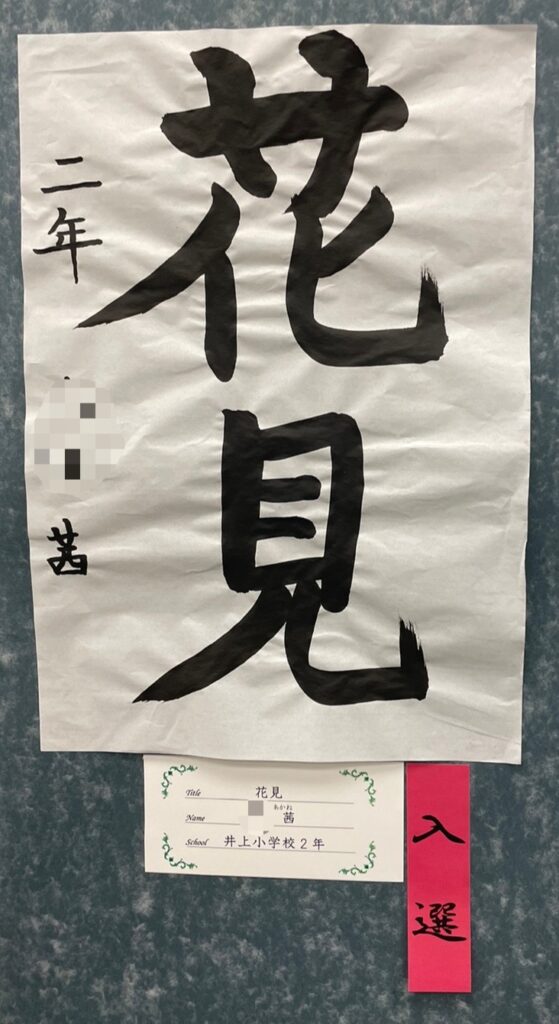 花見
二年
茜
Title 花見
あかね
Name 茜
School 井上小学校2年
入選